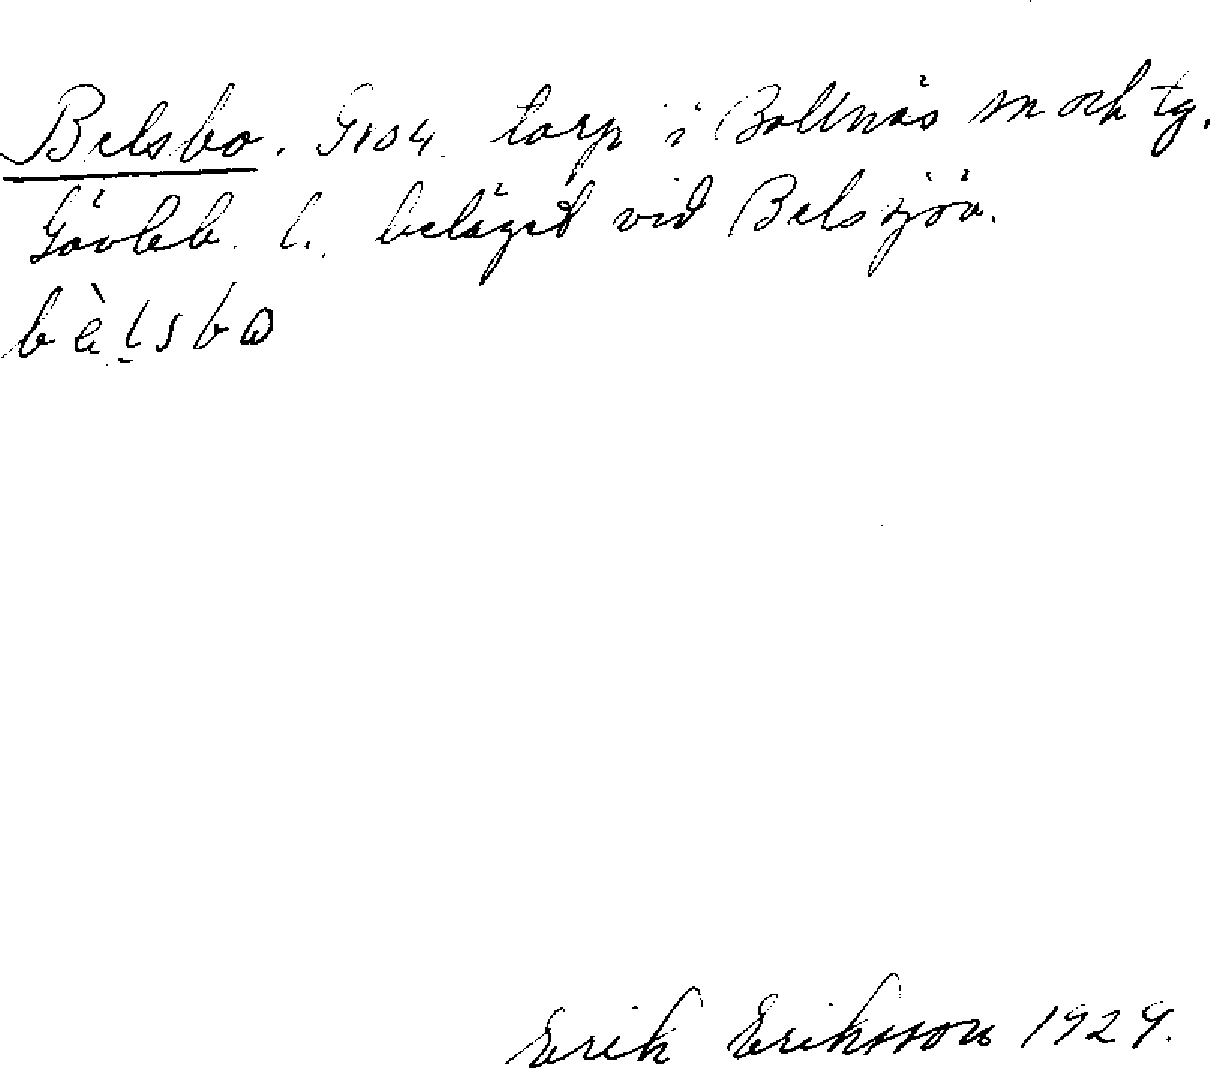 Belsbo. G104 torp i Bollnäs sn och tg.
Gävleb. l. beläget vid Belsjön.
bèlsbo
Erik Eriksson 1929.